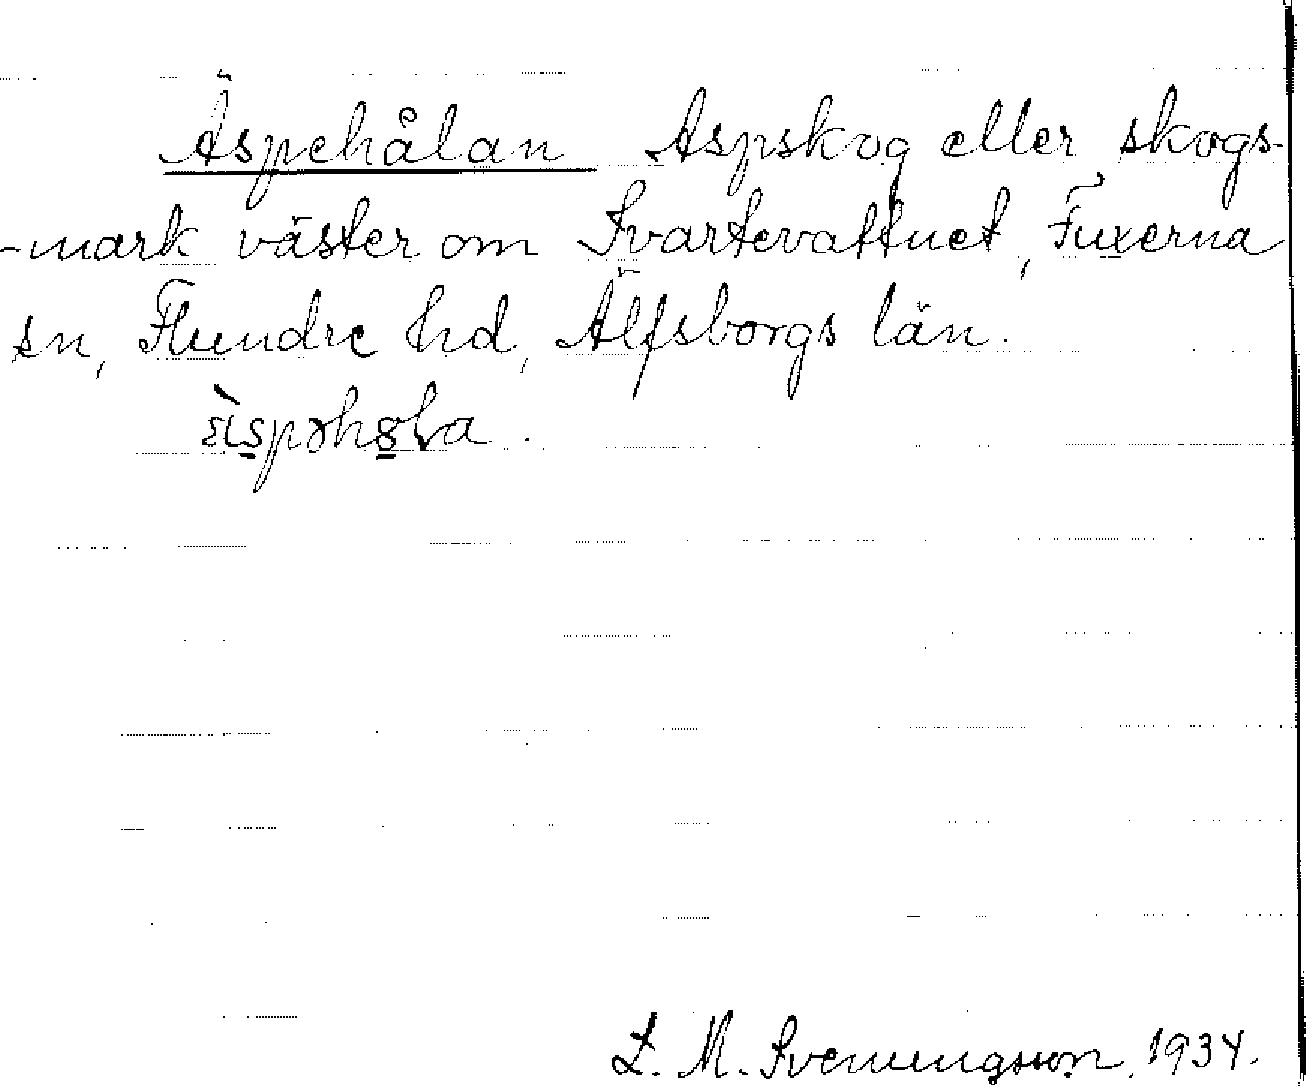 Äspehålan Aspskog eller skogs-
-mark väster om Svartevattnet, Fuxerna
sn, Flundre hd, Älfsborgs län.
L. M. Svenningsson, 1934.